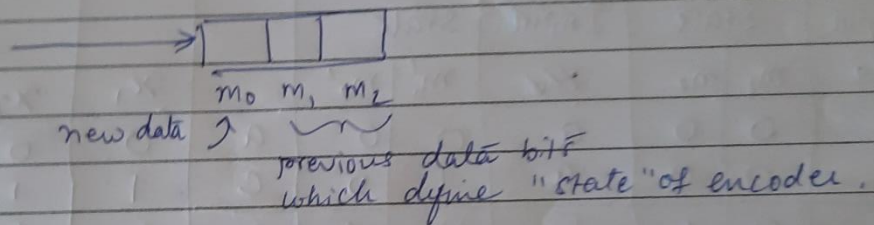 m₀ m₁ m₂
new data
previous data bits
which define "state" of encoder.